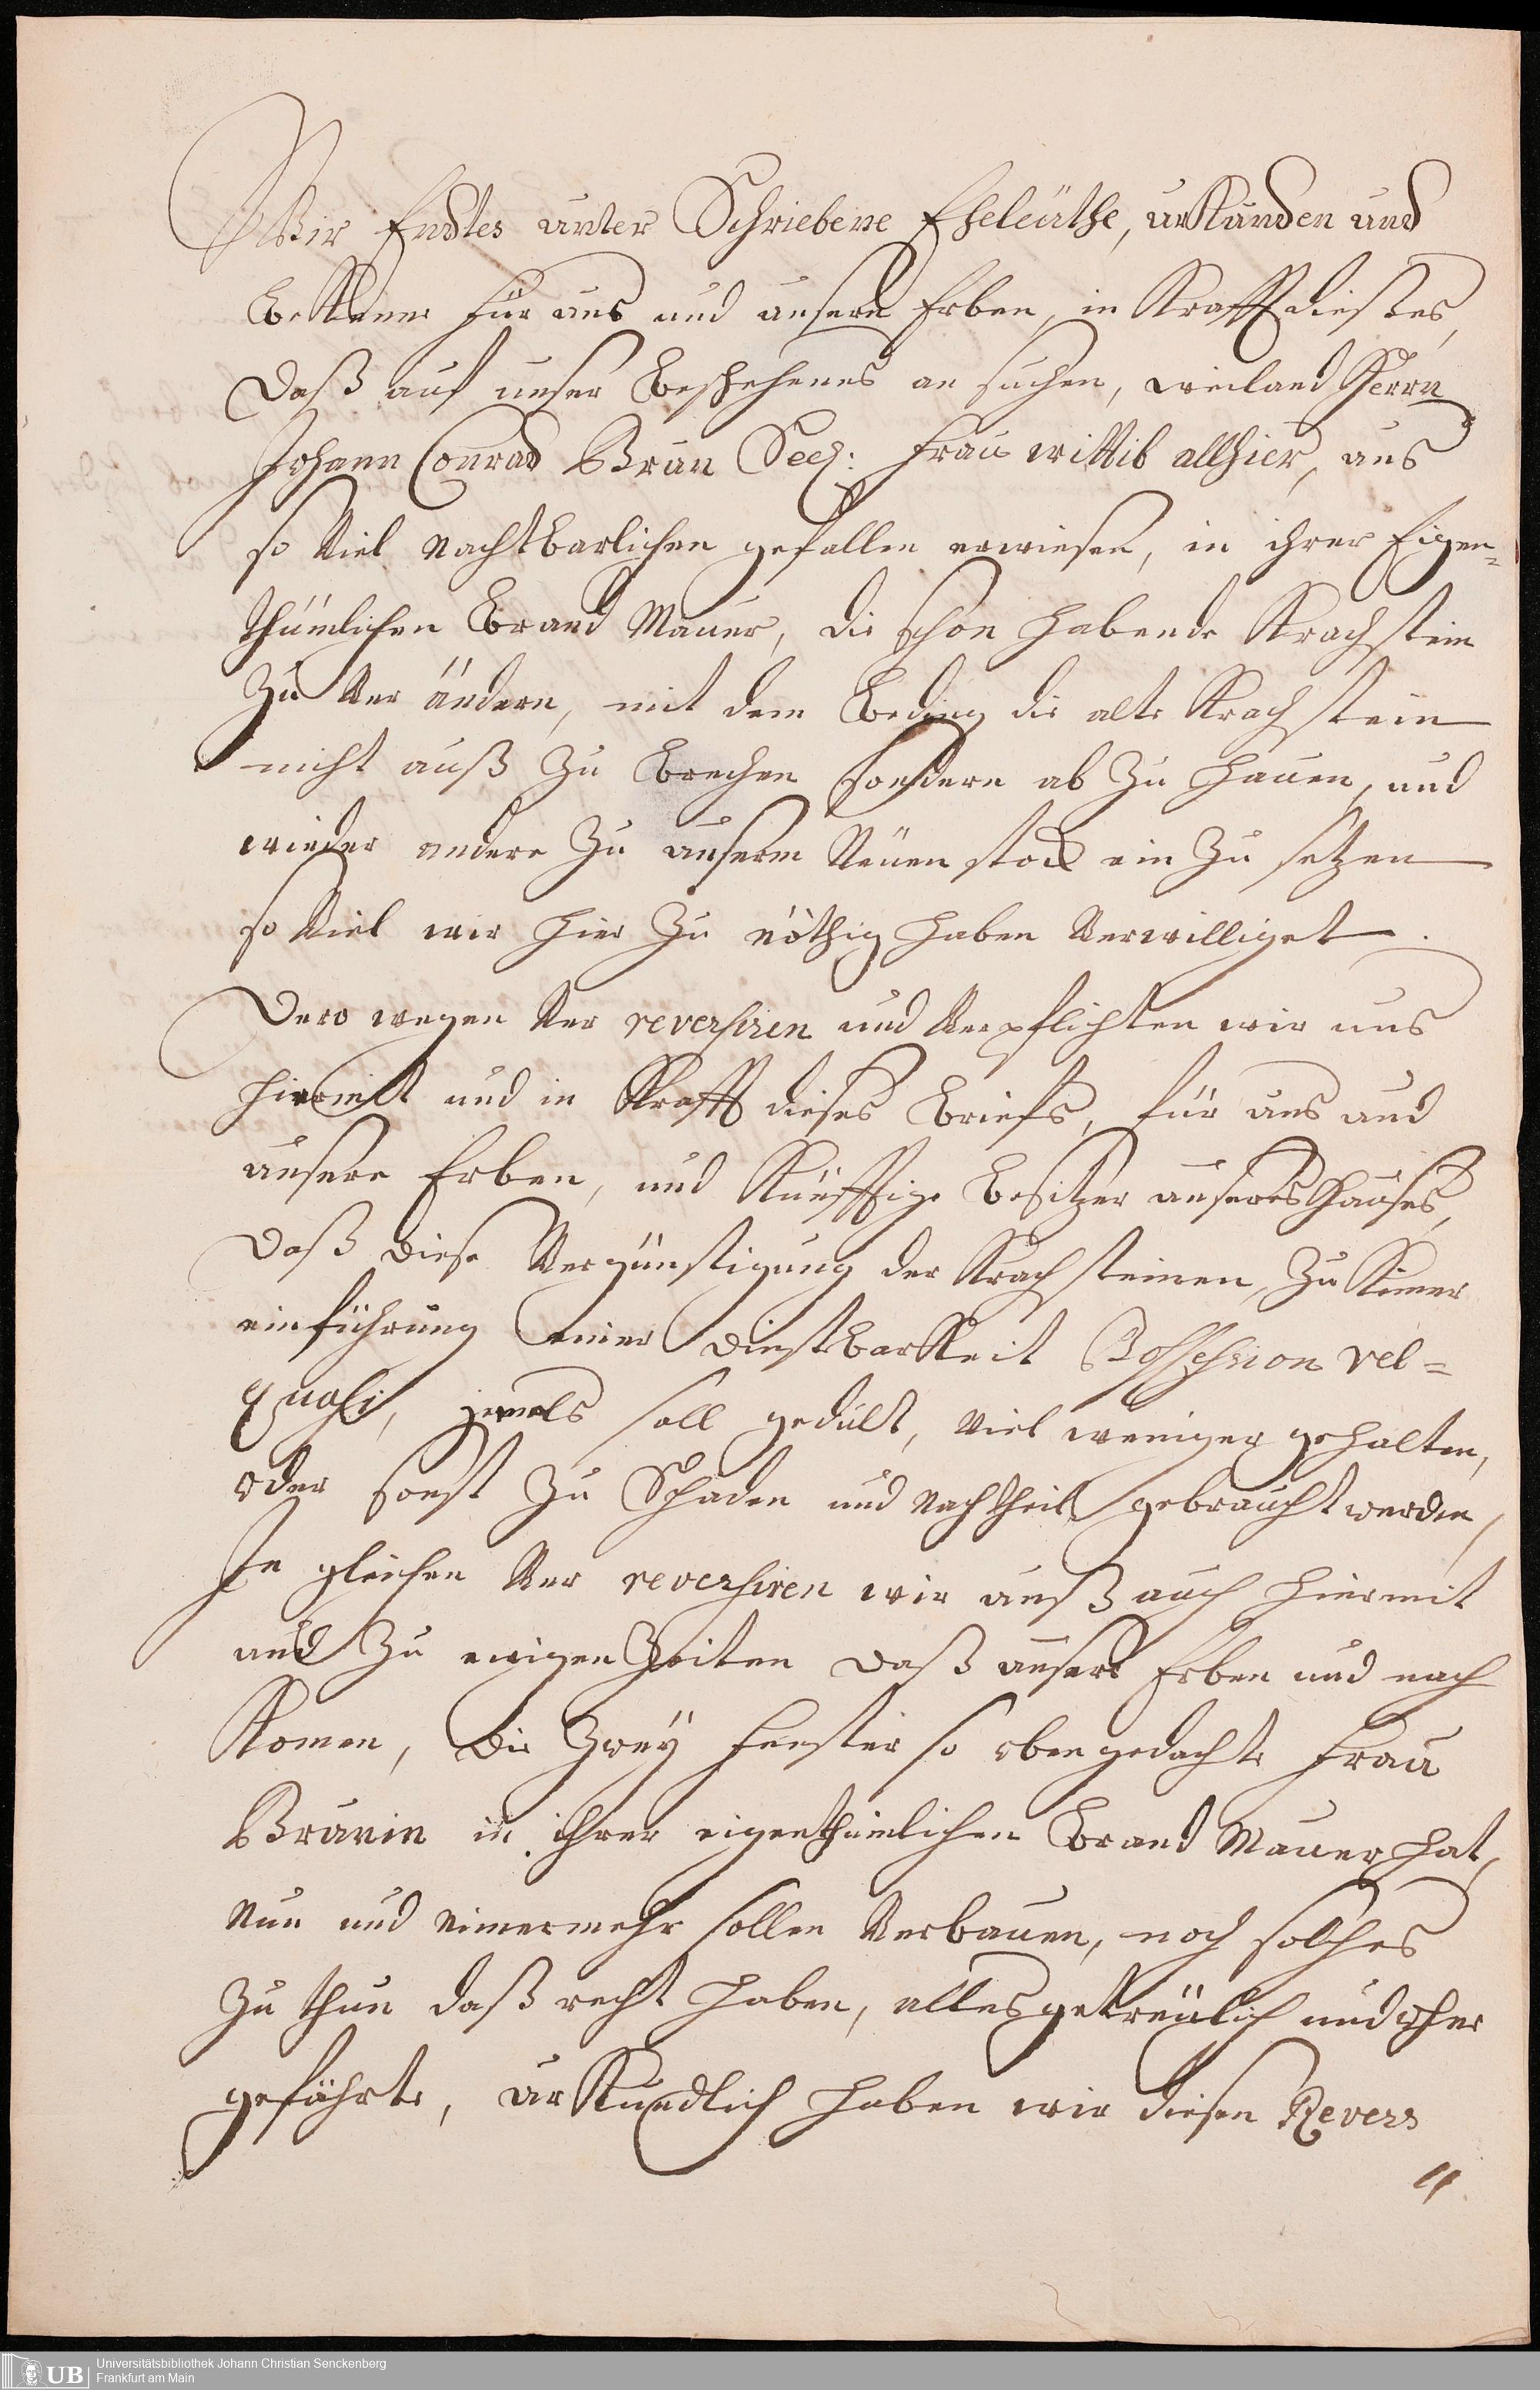 Wir Endtes unter Schriebene Eheleüthe, urkunden und
bekennen für uns und unsere Erben, in Krafft diesses,
Daß auf unser beschehenes an suchen, weiland Herrn
Johann Conrad Braun Seel: Frau wittib allhier, uns
so Viel nachtbarlichen gefallen erwiesen, in ihrer Eigen=
thümlichen brand Mauer, die schon habende Krachstein
Zu Ver ändern, mit dem beding die alte Krachstein
nicht auß Zu brechen sondern ab Zu hauen, und
wieder andere Zu unserm Neuen stock ein Zu setzen
so Viel wir hier Zu nöthig haben Verwilliget.
Dero wegen Ver reversiren und Verpflichten wir uns
hiermit und in Krafft dieses briefs, für uns und
unsere Erben, und Künfftige besitzer unseres Hauses,
Daß diese Vergünstigung der Krachsteinen, Zu Keiner
einführung einer dienstbarkeit Possession vel=
quasi, jemals soll gedult, Viel weniger gehalten,
oder sonst Zu Schaden und nachtheil gebraucht werden,
In gleichen Ver reversiren wir unß auch hiermit
und Zu ewigen Zeiten daß unsere Erben und nach
Komen, die Zwey Fenster so oben gedachte Frau
Braunin in ihrer eigenthümlichen brand Mauer hat,
nun und nimermehr sollen Verbauen, noch solches
Zu thun daß recht haben, alles getreülich und ohne
gefährte, urkundlich haben wir diesen Revers
Universitätsbibliothek Johann Christian Senckenberg
Frankfurt am Main
UB